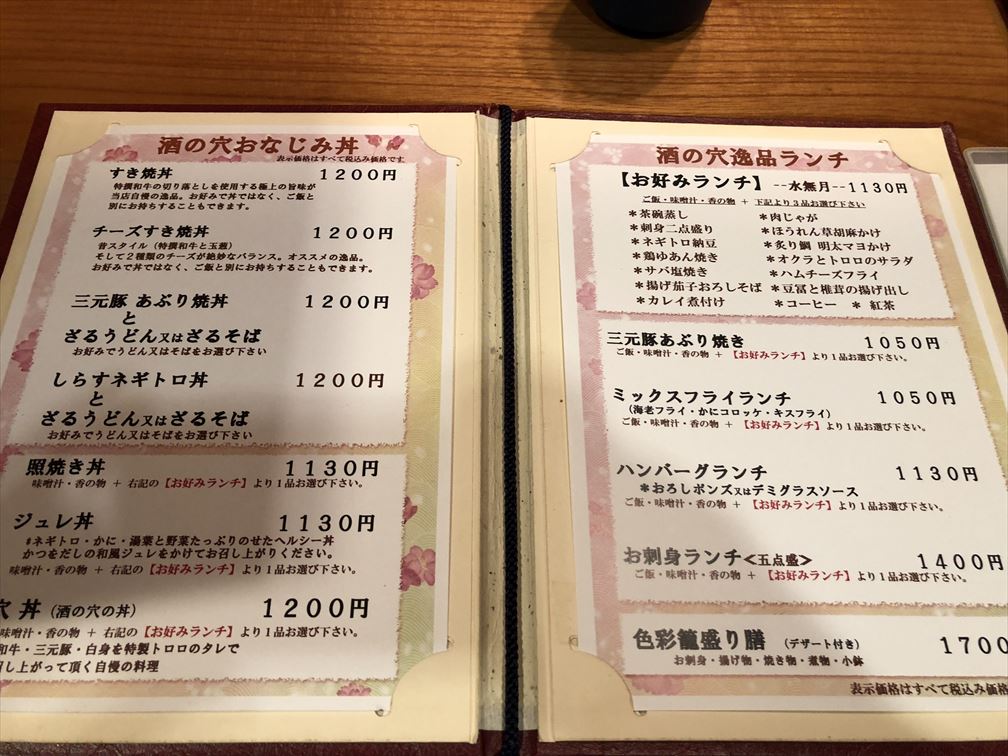 酒の穴おなじみ丼
表示価格はすべて税込み価格です
すき焼丼 1200円
特撰和牛の切り落としを使用する極上の旨味が
当店自慢の逸品。お好みで丼ではなく、ご飯と
別にお持ちすることもできます。
チーズすき焼丼 1200円
昔スタイル(特撰和牛と玉葱)
そして2種類のチーズが絶妙なバランス。オススメの逸品。
お好みで丼ではなく、ご飯と別にお持ちすることもできます。
三元豚 あぶり焼丼 1200円
と
ざるうどん又はざるそば
お好みでうどん又はそばをお選び下さい
しらすネギトロ丼 1200円
と
ざるうどん又はざるそば
お好みでうどん又はそばをお選び下さい
照焼き丼 1130円
味噌汁・香の物 + 右記の【お好みランチ】より1品お選び下さい。
ジュレ丼 1130円
#ネギトロ・かに・湯葉と野菜たっぷりのせたヘルシー丼
かつをだしの和風ジュレをかけてお召し上がりください。
味噌汁・香の物 + 右記の【お好みランチ】より1品お選び下さい。
穴丼(酒の穴の丼) 1200円
味噌汁・香の物 + 右記の【お好みランチ】より1品お選び下さい。
和牛・三元豚・白身を特製トロロのタレで
召し上がって頂く自慢の料理
酒の穴逸品ランチ
【お好みランチ】--水無月--1130円
ご飯・味噌汁・香の物 + 下記より3品お選び下さい
*茶碗蒸し *肉じゃが
*刺身二点盛り *ほうれん草胡麻かけ
*ネギトロ納豆 *炙り鯛 明太マヨかけ
*鶏ゆあん焼き *オクラとトロロのサラダ
*サバ塩焼き *ハムチーズフライ
*揚げ茄子おろしそば *豆冨と椎茸の揚げ出し
*カレイ煮付け *コーヒー * 紅茶
三元豚あぶり焼き 1050円
ご飯・味噌汁・香の物 + 【お好みランチ】より1品お選び下さい。
ミックスフライランチ 1050円
(海老フライ・かにコロッケ・キスフライ)
ご飯・味噌汁・香の物 + 【お好みランチ】より1品お選び下さい。
ハンバーグランチ 1130円
*おろしポンズ又はデミグラスソース
ご飯・味噌汁・香の物 + 【お好みランチ】より1品お選び下さい。
お刺身ランチ<五点盛> 1400円
ご飯・味噌汁・香の物 + 【お好みランチ】より1品お選び下さい。
色彩籠盛り膳 (デザート付き) 1700
お刺身・揚げ物・焼き物・煮物・小鉢
表示価格はすべて税込み価格